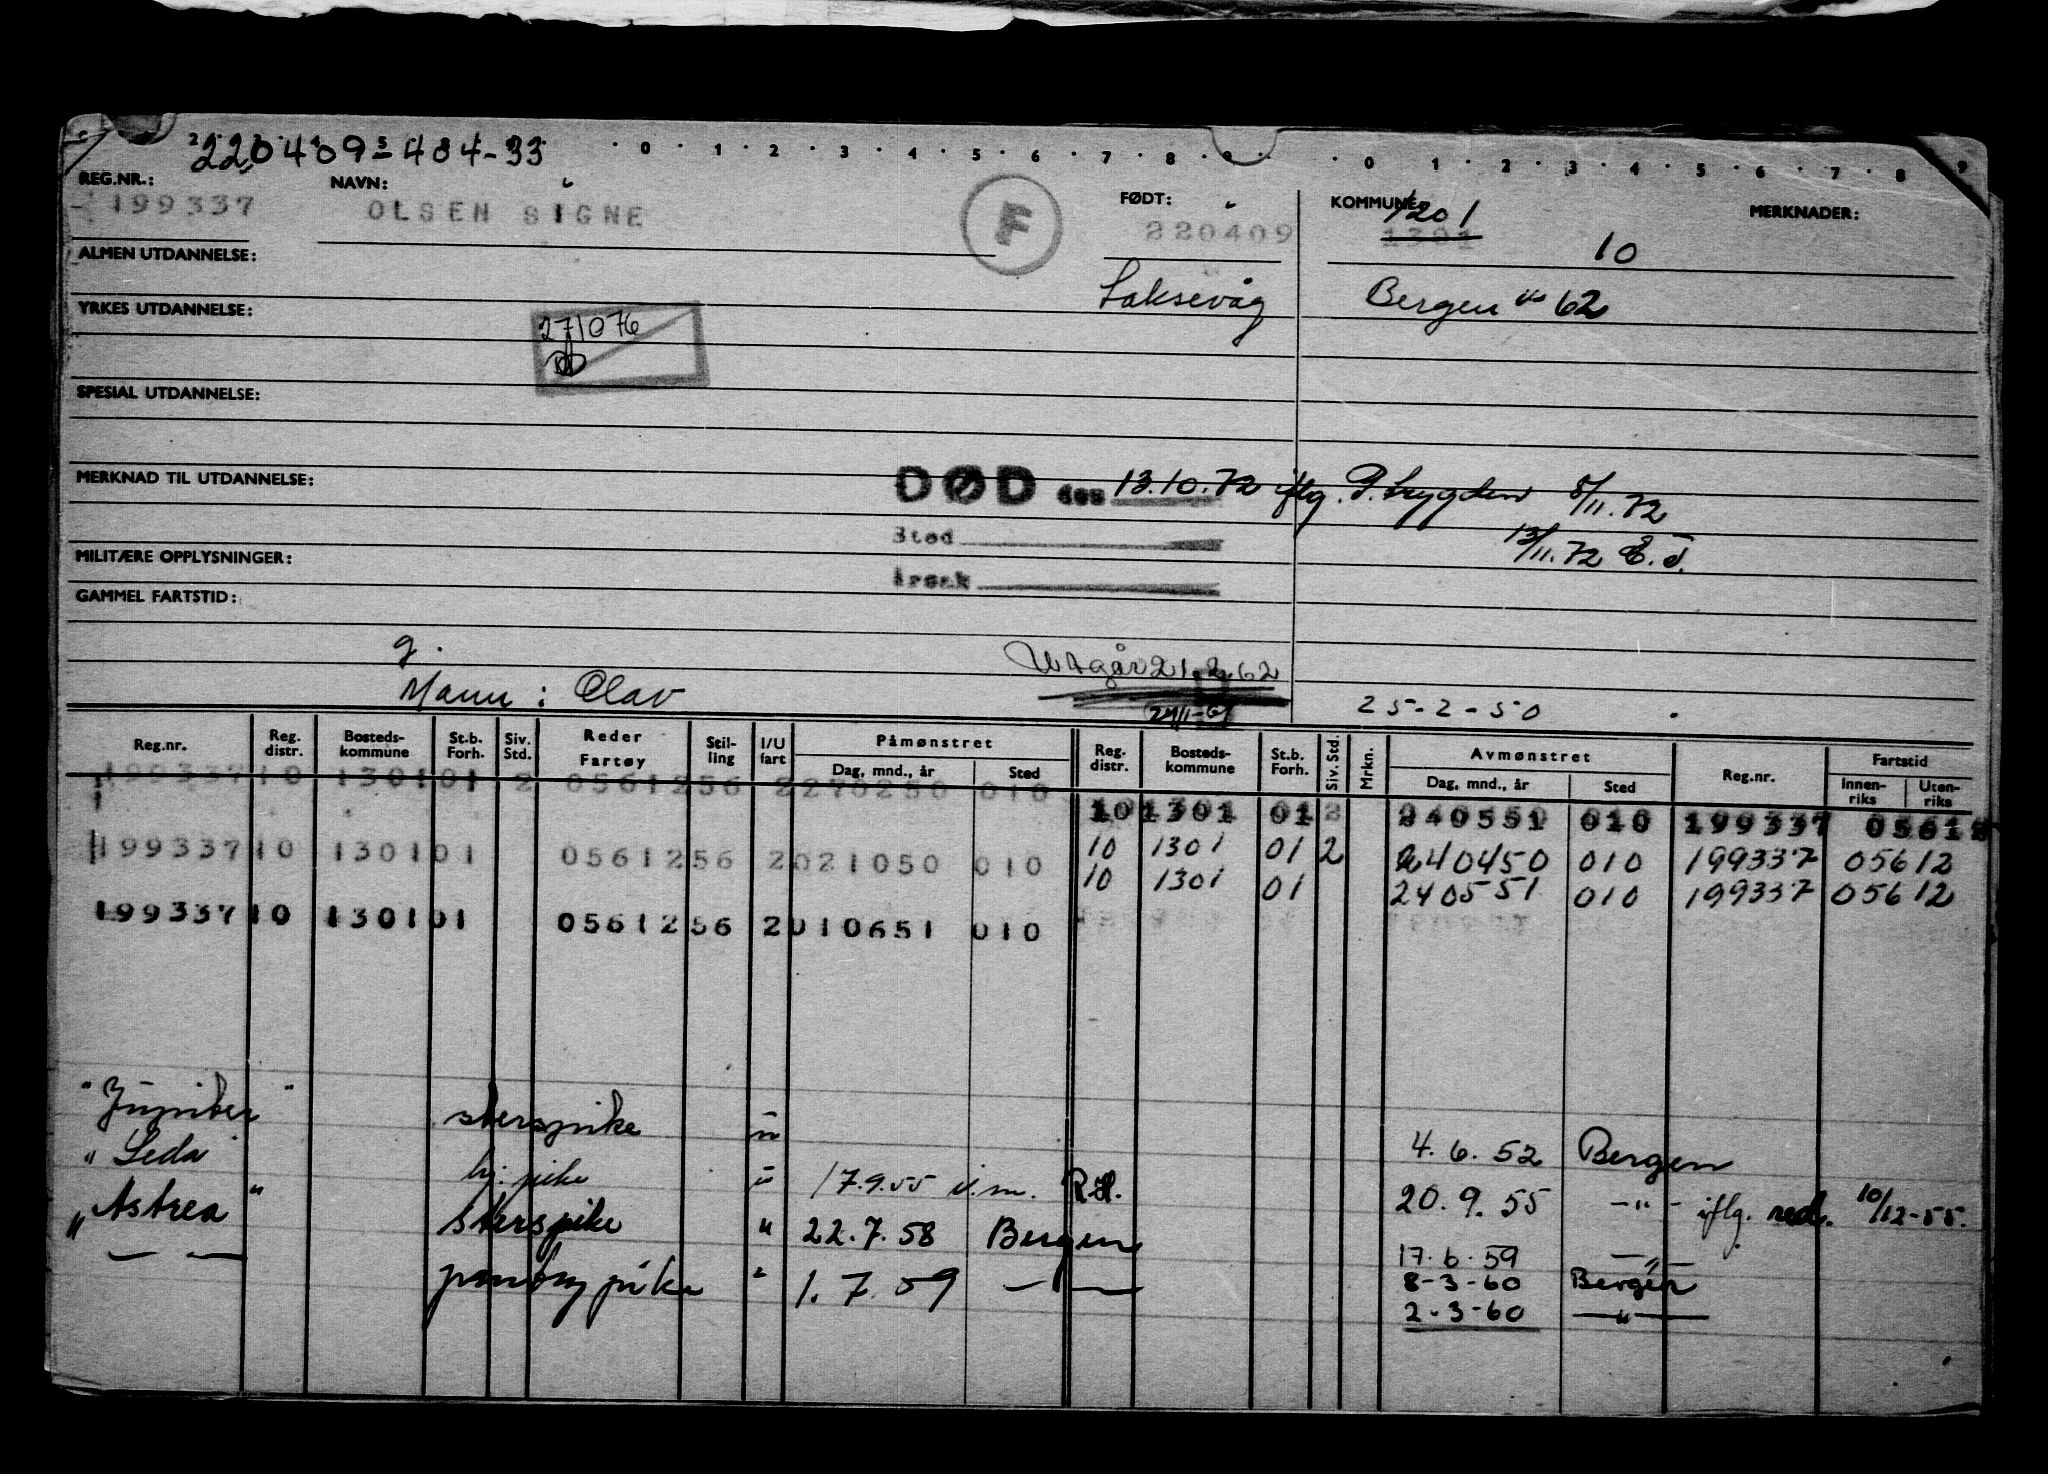 220409-484-33
0 1 2 3 4 5 6 7 8 9 0 1 2 3 4 5 6 7 8 9
REG.NR.: NAVN: FØDT: KOMMUNE: 1201 MERKNADER:
199337 OLSEN SIGNE F 220409 1301 10
ALMEN UTDANNELSE: Laksevåg Bergen 62
YRKES UTDANNELSE:
271076
SPESIAL UTDANNELSE:
MERKNAD TIL UTDANNELSE: DØD den 13.10.72 iflg. P. trygden 8/11.72
Sted 13/11.72
MILITÆRE OPPLYSNINGER: Årsak
GAMMEL FARTSTID:
g.
Utgår 21.2.62
Mann: Olav
25-2-50
Reg.nr. Reg. distr. Bosteds-kommune St.b. Forh. Siv. Std. Reder Fartøy Stil-ling I/U fart Påmønstret Dag, mnd., år Sted Reg. distr. Bosteds-kommune St.b. Forh. Siv. Std. Mrkn. Avmønstret Dag, mnd., år Sted Reg.nr. Fartstid Innen-riks Uten-riks
199337 10 1301 01 2 05612 56 2 270250 010
10 1301 01 2 240551 010 199337 05612
199337 10 1301 01 05612 56 2 021050 010 10 1301 01 2 240450 010 199337 05612
10 1301 01 240551 010 199337 05612
199337 10 1301 01 05612 56 2 010651 010
"Jupiter" 4.6.52 Bergen
"Leda" 17.9.55 20.9.55 -"- iflg. red. 10/12-55.
"Astrea" " 22.7.58 Bergen 17.6.59 -"-
— — " 1.7.59 — — 8-3-60 Bergen
2-3-60 —"—